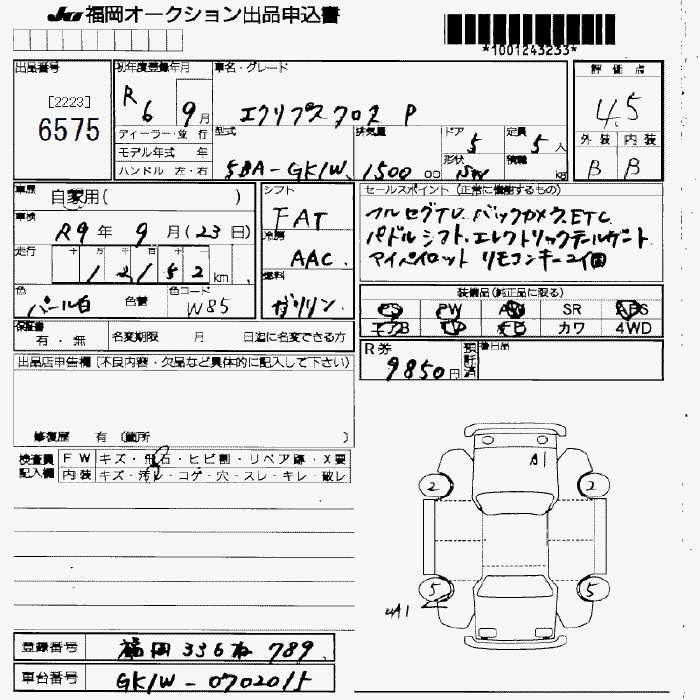 JU 福岡オークション出品申込書
*1001243233*
出品番号
[2223]
6575
初年度登録年月
R6 9月
車名・グレード
エクリプスクロス P
評価点
4.5
外装 内装
B B
ディーラー・並行
モデル年式 年
ハンドル 左・右
型式
5BA-GK1W
排気量
1500 cc
ドア
5
形状
SW
定員
5人
積載
kg
車歴
自家用( )
車検
R9年 9月(23日)
走行
十 万 千 百 十
12152 km
色
パール白
色替
色コード
W85
シフト
FAT
冷房
AAC
燃料
ガソリン
セールスポイント (正常に機能するもの)
フルセグTV. バックカメラ. ETC.
パドルシフト. エレクトリックテールゲート
マイパイロット リモコンキー2個
装備品(純正品に限る)
PS PW AW SR ABS
エアB TV ナビ カワ 4WD
保証書
有・無
名変期限 月 日迄に名変できる方
R券
9850円
預託済
後日品
出品店申告欄(不良内容・欠品など具体的に記入して下さい)
修復歴 有 (箇所 )
検査員記入欄
FW キズ・飛石・ヒビ割・リペア跡・X要
内装 キズ・汚レ・コゲ・穴・スレ・キレ・破レ
A1
2 2
5 5
4A1
登録番号 福岡 336 789
車台番号 GK1W-0702015